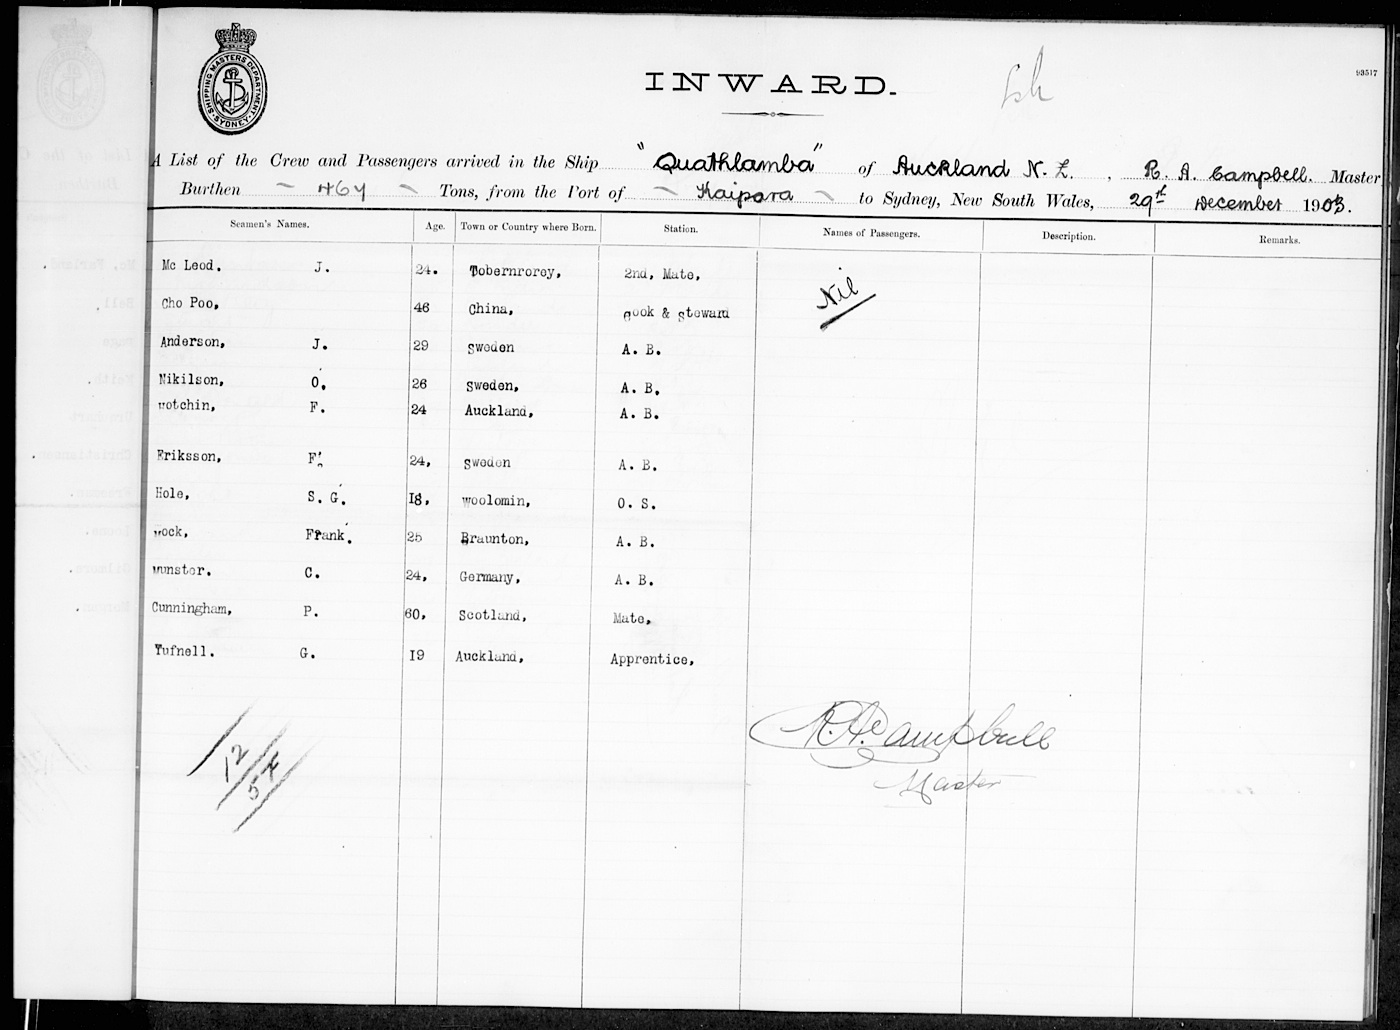 INWARD.
93517
SHIPPING MASTERS DEPARTMENT
SYDNEY
A List of the Crew and Passengers arrived in the Ship "Quathlamba" of Auckland N. Z. , R. A. Campbell. Master
Burthen 464 Tons, from the Port of Kaipara to Sydney, New South Wales, 29th December 1903.
Seamen's Names. Age. Town or Country where Born. Station. Names of Passengers. Description. Remarks.
Mc Leod. J. 24. Tobernrorey, 2nd, Mate, Nil
Cho Poo, 46 China, Cook & Steward
Anderson, J. 29 Sweden A. B.
Nikilson, O. 26 Sweden, A. B.
Wotchin, F. 24 Auckland, A. B.
Eriksson, F. 24, Sweden A. B.
Hole, S. G. 18, Woolomin, O. S.
Wock, Frank. 25 Braunton, A. B.
Munster. C. 24, Germany, A. B.
Cunningham, P. 60, Scotland, Mate,
Tufnell. G. 19 Auckland, Apprentice,
R. A. Campbell
Master
12